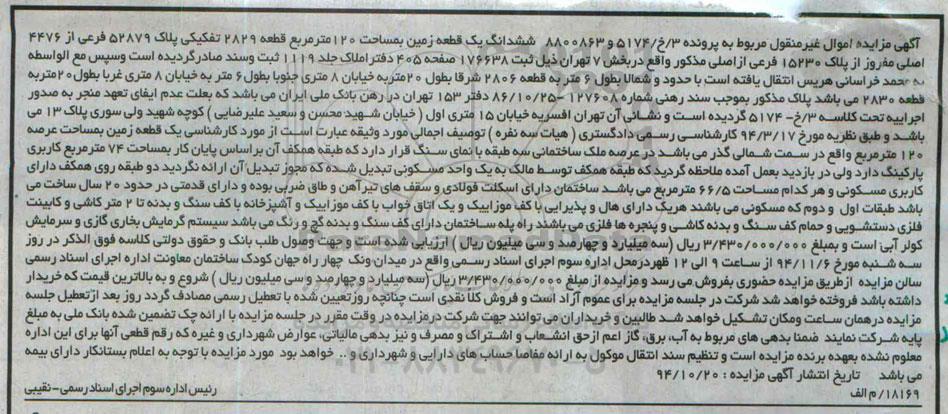 آگهی مزایده اموال غیرمنقول مربوط به پرونده ۳/خ/۵۱۷۴ و ۸۸۰۰۸۶۳ ششدانگ یک قطعه زمین بمساحت ۱۲۰مترمربع قطعه ۲۸۲۹ تفکیکی پلاک ۵۲۸۷۹ فرعی از ۴۴۷۶
اصلی مفروز از پلاک ۱۵۲۳۰ فرعی ازاصلی مذکور واقع دربخش ۷ تهران ذیل ثبت ۱۷۶۶۳۸ صفحه ۴۰۵ دفتراملاک جلد ۱۱۱۹ ثبت وسند صادرگردیده است وسپس مع الواسطه
به محمد خراسانی هریس انتقال یافته است با حدود و شمالا بطول ۶ متر به قطعه ۲۸۰۶ شرقا بطول ۲۰متربه خیابان ۸ متری جنوبا بطول ۶ متر به خیابان ۸ متری غربا بطول۲۰متربه
قطعه ۲۸۳۰ می باشد پلاک مذکور بموجب سند رهنی شماره ۱۲۷۶۰۸ -۸۶/۱۰/۲۵ دفتر ۱۵۳ تهران در رهن بانک ملی ایران می باشد که بعلت عدم ایفای تعهد منجر به صدور
اجراییه تحت کلاسه ۳/خ- ۵۱۷۴ گردیده است و نشانی آن تهران افسریه خیابان ۱۵ متری اول ( خیابان شهید محسن و سعید علیرضایی ) کوچه شهید ولی سوری پلاک ۱۳ می
باشد و طبق نظریه مورخ ۹۴/۳/۱۷ کارشناسی رسمی دادگستری ( هیات سه نفره ) توصیف اجمالی مورد وثیقه عبارت است از مورد کارشناسی یک قطعه زمین بمساحت عرصه
۱۲۰ مترمربع واقع در سمت شمالی گذر می باشد در عرصه ملک ساختمانی سه طبقه با نمای سنگ قرار دارد که طبقه همکف آن براساس پایان کار بمساحت ۷۴ مترمربع کاربری
پارکینگ دارد ولی در بازدید بعمل آمده ملاحظه گردید که طبقه همکف توسط مالک به یک واحد مسکونی تبدیل شده که مجوز تبدیل آن ارائه نگردید دو طبقه روی همکف دارای
کاربری مسکونی و هر کدام مساحت ۶۶/۵ مترمربع می باشد ساختمان دارای اسکلت فولادی و سقف های تیرآهن و طاق ضربی بوده و دارای قدمتی در حدود ۲۰ سال ساخت می
باشد طبقات اول و دوم که مسکونی می باشند هریک دارای هال و پذیرایی با کف موزاییک و یک اتاق خواب با کف موزاییک و آشپزخانه با کف سنگ و بدنه تا ۲ متر کاشی و کابینت
فلزی دستشویی و حمام کف سنگ و بدنه کاشی و پنجره ها فلزی می باشند راه پله ساختمان دارای کف سنگ و بدنه گچ و رنگ می باشد سیستم گرمایش بخاری گازی و سرمایش
کولر آبی است و بمبلغ ۳/۴۳۰/۰۰۰/۰۰۰ ریال (سه میلیارد و چهارصد و سی میلیون ریال ) ارزیابی شده است و جهت وصول طلب بانک و حقوق دولتی کلاسه فوق الذکر در روز
سه شنبه مورخ ۹۴/۱۱/۶ از ساعت ۹ الی ۱۲ ظهردرمحل اداره سوم اجرای اسناد رسمی واقع در میدان ونک چهار راه جهان کودک ساختمان معاونت اداره اجرای اسناد رسمی
سالن مزایده ازطریق مزایده حضوری بفروش می رسد و مزایده از مبلغ ۳/۴۳۰/۰۰۰/۰۰۰ریال (سه میلیارد و چهارصد و سی میلیون ریال ) شروع و به بالاترین قیمت که خریدار
داشته باشد فروخته خواهد شد شرکت در جلسه مزایده برای عموم آزاد است و فروش کلا نقدی است چنانچه روزتعیین شده با تعطیل رسمی مصادف گردد روز بعد ازتعطیل جلسه
مزایده درهمان ساعت ومکان تشکیل خواهد شد طالبین و خریداران می توانند جهت شرکت درمزایده در وقت مقرر در جلسه مزایده با ارائه چک تضمین شده بانک ملی به مبلغ
پایه شرکت نمایند ضمنا بدهی های مربوط به آب، برق، گاز اعم ازحق انشعاب و اشتراک و مصرف و نیز بدهی مالیاتی، عوارض شهرداری و غیره که رقم قطعی آنها برای این اداره
معلوم نشده بعهده برنده مزایده است و تنظیم سند انتقال موکول به ارائه مفاصاحساب های دارایی و شهرداری و .. خواهد بود مورد مزایده با توجه به اعلام بستانکار دارای بیمه
می باشد تاریخ انتشار آگهی مزایده : ۹۴/۱۰/۲۰
۱۸۱۶۹/م الف رئیس اداره سوم اجرای اسناد رسمی-نقیبی